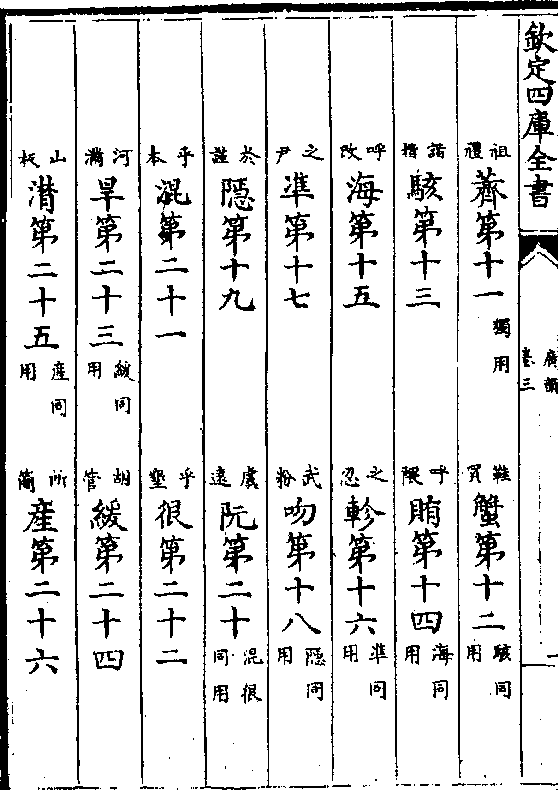 欽定四庫全書
廣韻
卷三
祖禮薺第十一獨用 鞵買蟹第十二駭同用
諧楷駭第十三 呼隈賄第十四海同用
呼改海第十五 之忍軫第十六準同用
之尹準第十七 武粉吻第十八隱同用
於謹隱第十九 虞遠阮第二十混很同用
乎本混第二十一 乎墾很第二十二
河滿旱第二十三緩同用 胡管緩第二十四
山板潸第二十五產同用 所簡產第二十六